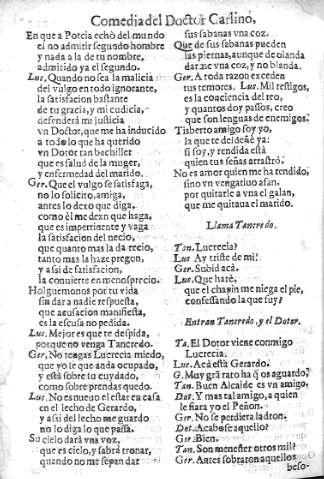 Comedia del Doctor Carlino,
En que a Porcia echò del mundo
el no admitir segundo hombre
y nada a la de tu nombre,
admitido ya el segundo.
Luc. Quando no sea la malicia
del vulgo en todo ignorante,
la satisfacion bastante
de tu gracia, y mi cudicia,
defenderà mi justicia
vn Doctor, que me ha inducido
a todo lo que ha querido
vn Dotor tan bachiller
que es salud de la muger,
y enfermedad del marido.
Ger. Que el vulgo se satisfaga,
no lo solicito, amiga,
antes lo dexo que diga,
como èl me dexn que haga,
que es impertinente y vaga
la satisfacion del necio,
que quanto mas la da recio,
tanto mas la haze pregon,
y assi de satisfacion,
la conuierte en menosprecio.
Holguemonos por tu vida
sin dar a nadie respuesta,
que acusacion manifiesta,
es la escusa no pedida.
Luc. Mejor es que te despida,
porque no venga Tancredo.
Ger. No tengas Lucrecia miedo,
que yo le que anda ocupado,
y està sobre tu cuydado,
como sobre prendas quedo.
Luc. No es nueuo el estar en casa
en el lecho de Gerardo,
y assi del lecho me guardo
no lo digo lo que passa.
Su cielo darà vna voz,
que es cielo, y sabrà tronar,
quando no me sepan dar
sus sabanas vna coz.
Que de sus sabanas pueden
las piernas, aunque de olanda
darme vna coz, y no blanda.
Ger. A toda razon exceden
tus temores. Luc. Mil testigos,
es la conciencia del reo,
y quantos doy passos, creo
que son lenguas de enemigos.
Tisberto amigo soy yo,
la que te deideñè ya:
si soy, y rendida està
quien tus señas arrastrò.
No es amor quien me ha rendido,
sino vn vengatiuo afan.
por quitarle a vna el galan,
que me quitaua el marido.
Llama Tancredo.
Tan. Lucrecia?
Luc. Ay triste de mi!
Ger. Subid acà.
Luc. Que harè,
que el chapin me niega el pie,
confessando la que fuy?
Entran Tancredo, y el Dotor.
Ta. El Dotor viene conmigo
Lucrecia.
Luc. Acà està Gerardo.
G. Muy grã rato ha q̃ os aguardo?
Tan. Buen Alcaide es vn amigo,
Dot. Y mas tal amigo, a quien
le fiara yo el Peñon.
Ger. No se perdiera ladron.
Dot. Acabose aquello?
Ger. Bien.
Tan. Son menester otros mil?
Ger. Antes sobraron aquellos
beso-